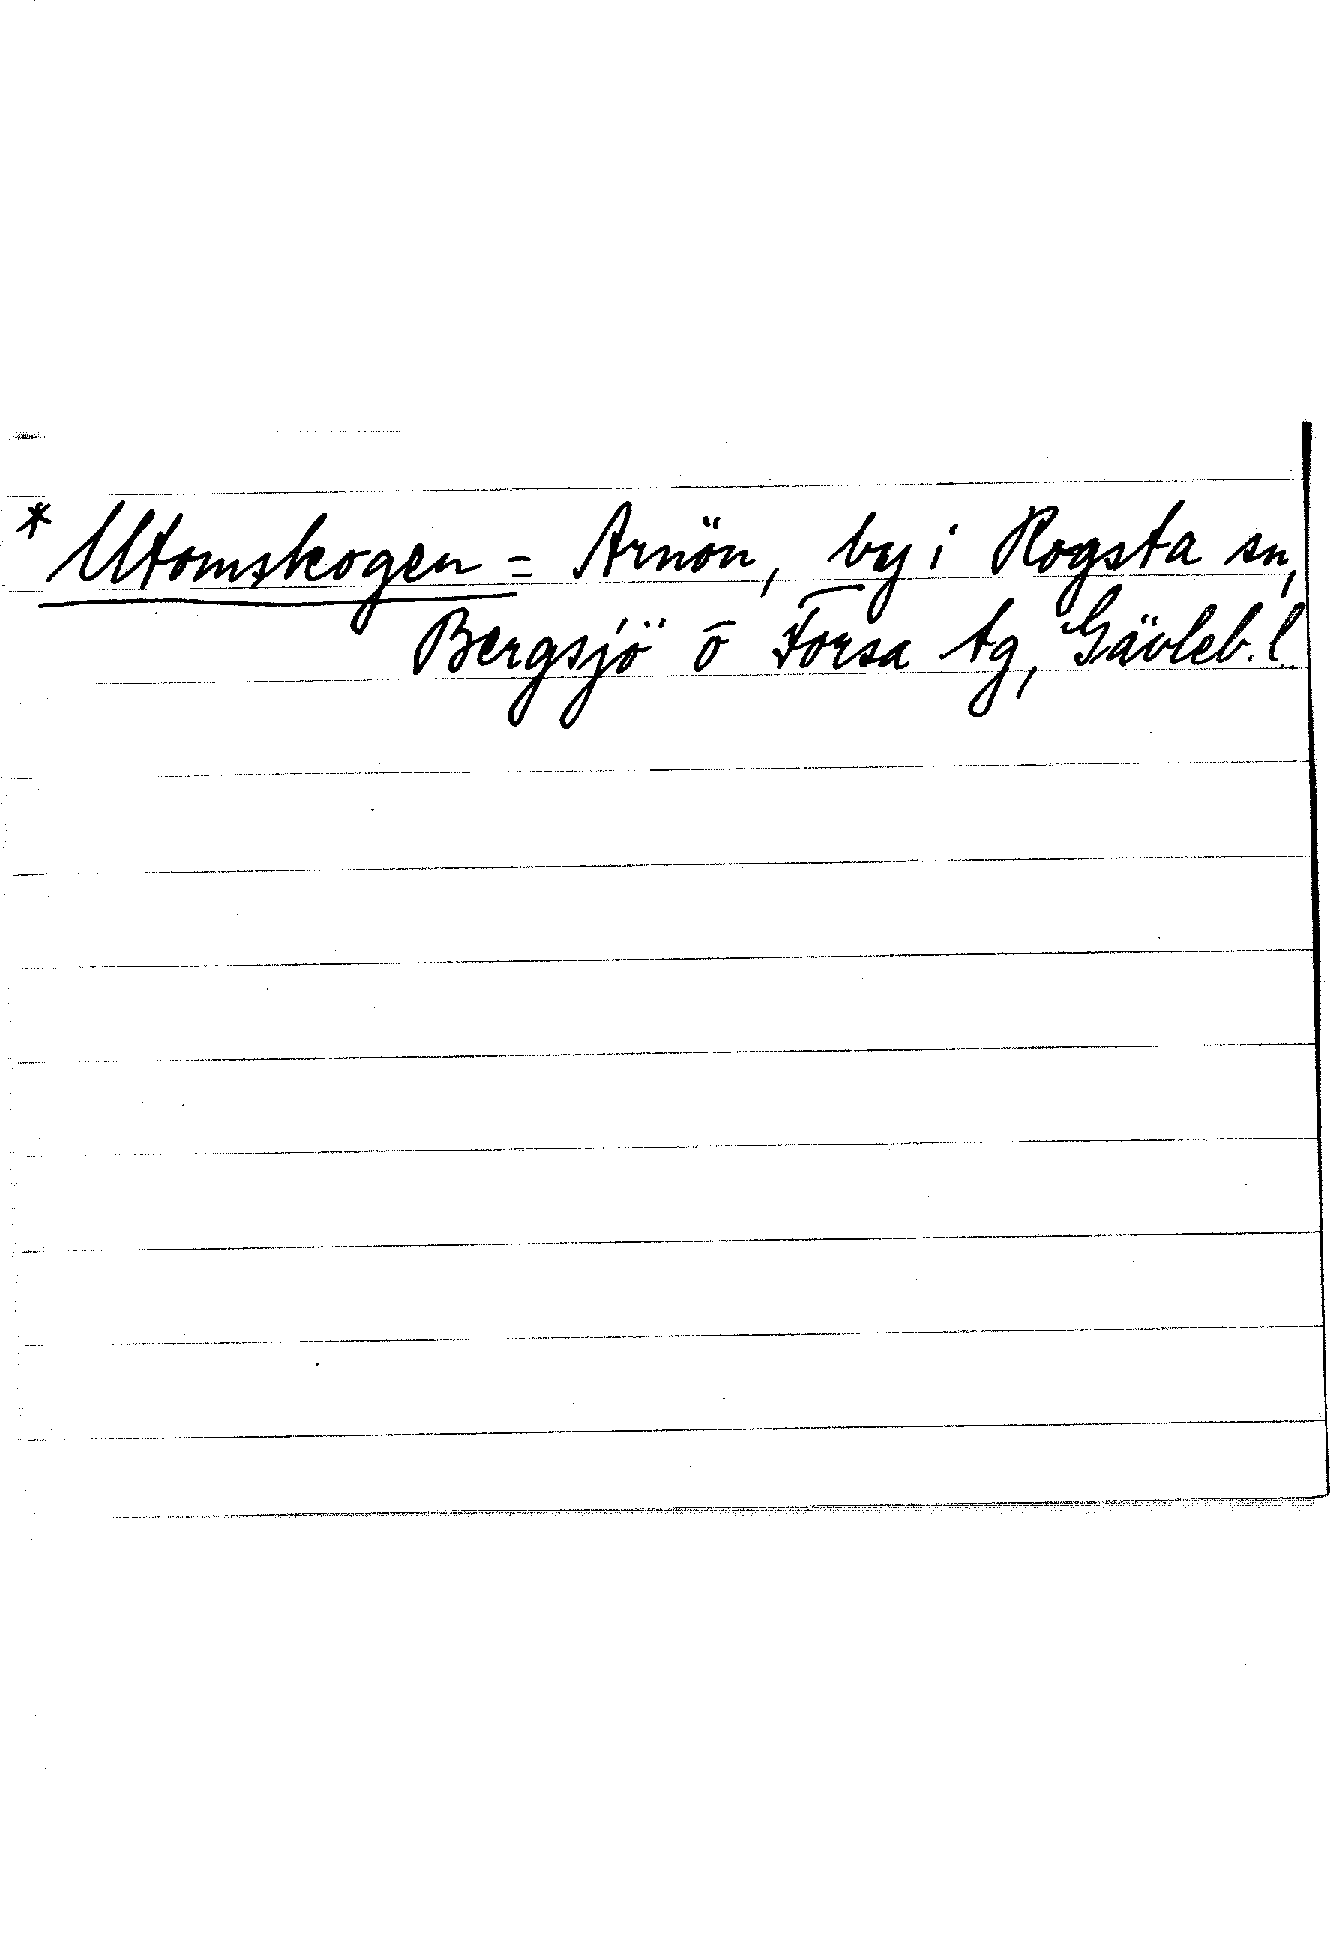 * Utomskogen = Arnön, by i Rogsta sn,
Bergsjö o Forsa tg, Gävleb. l.